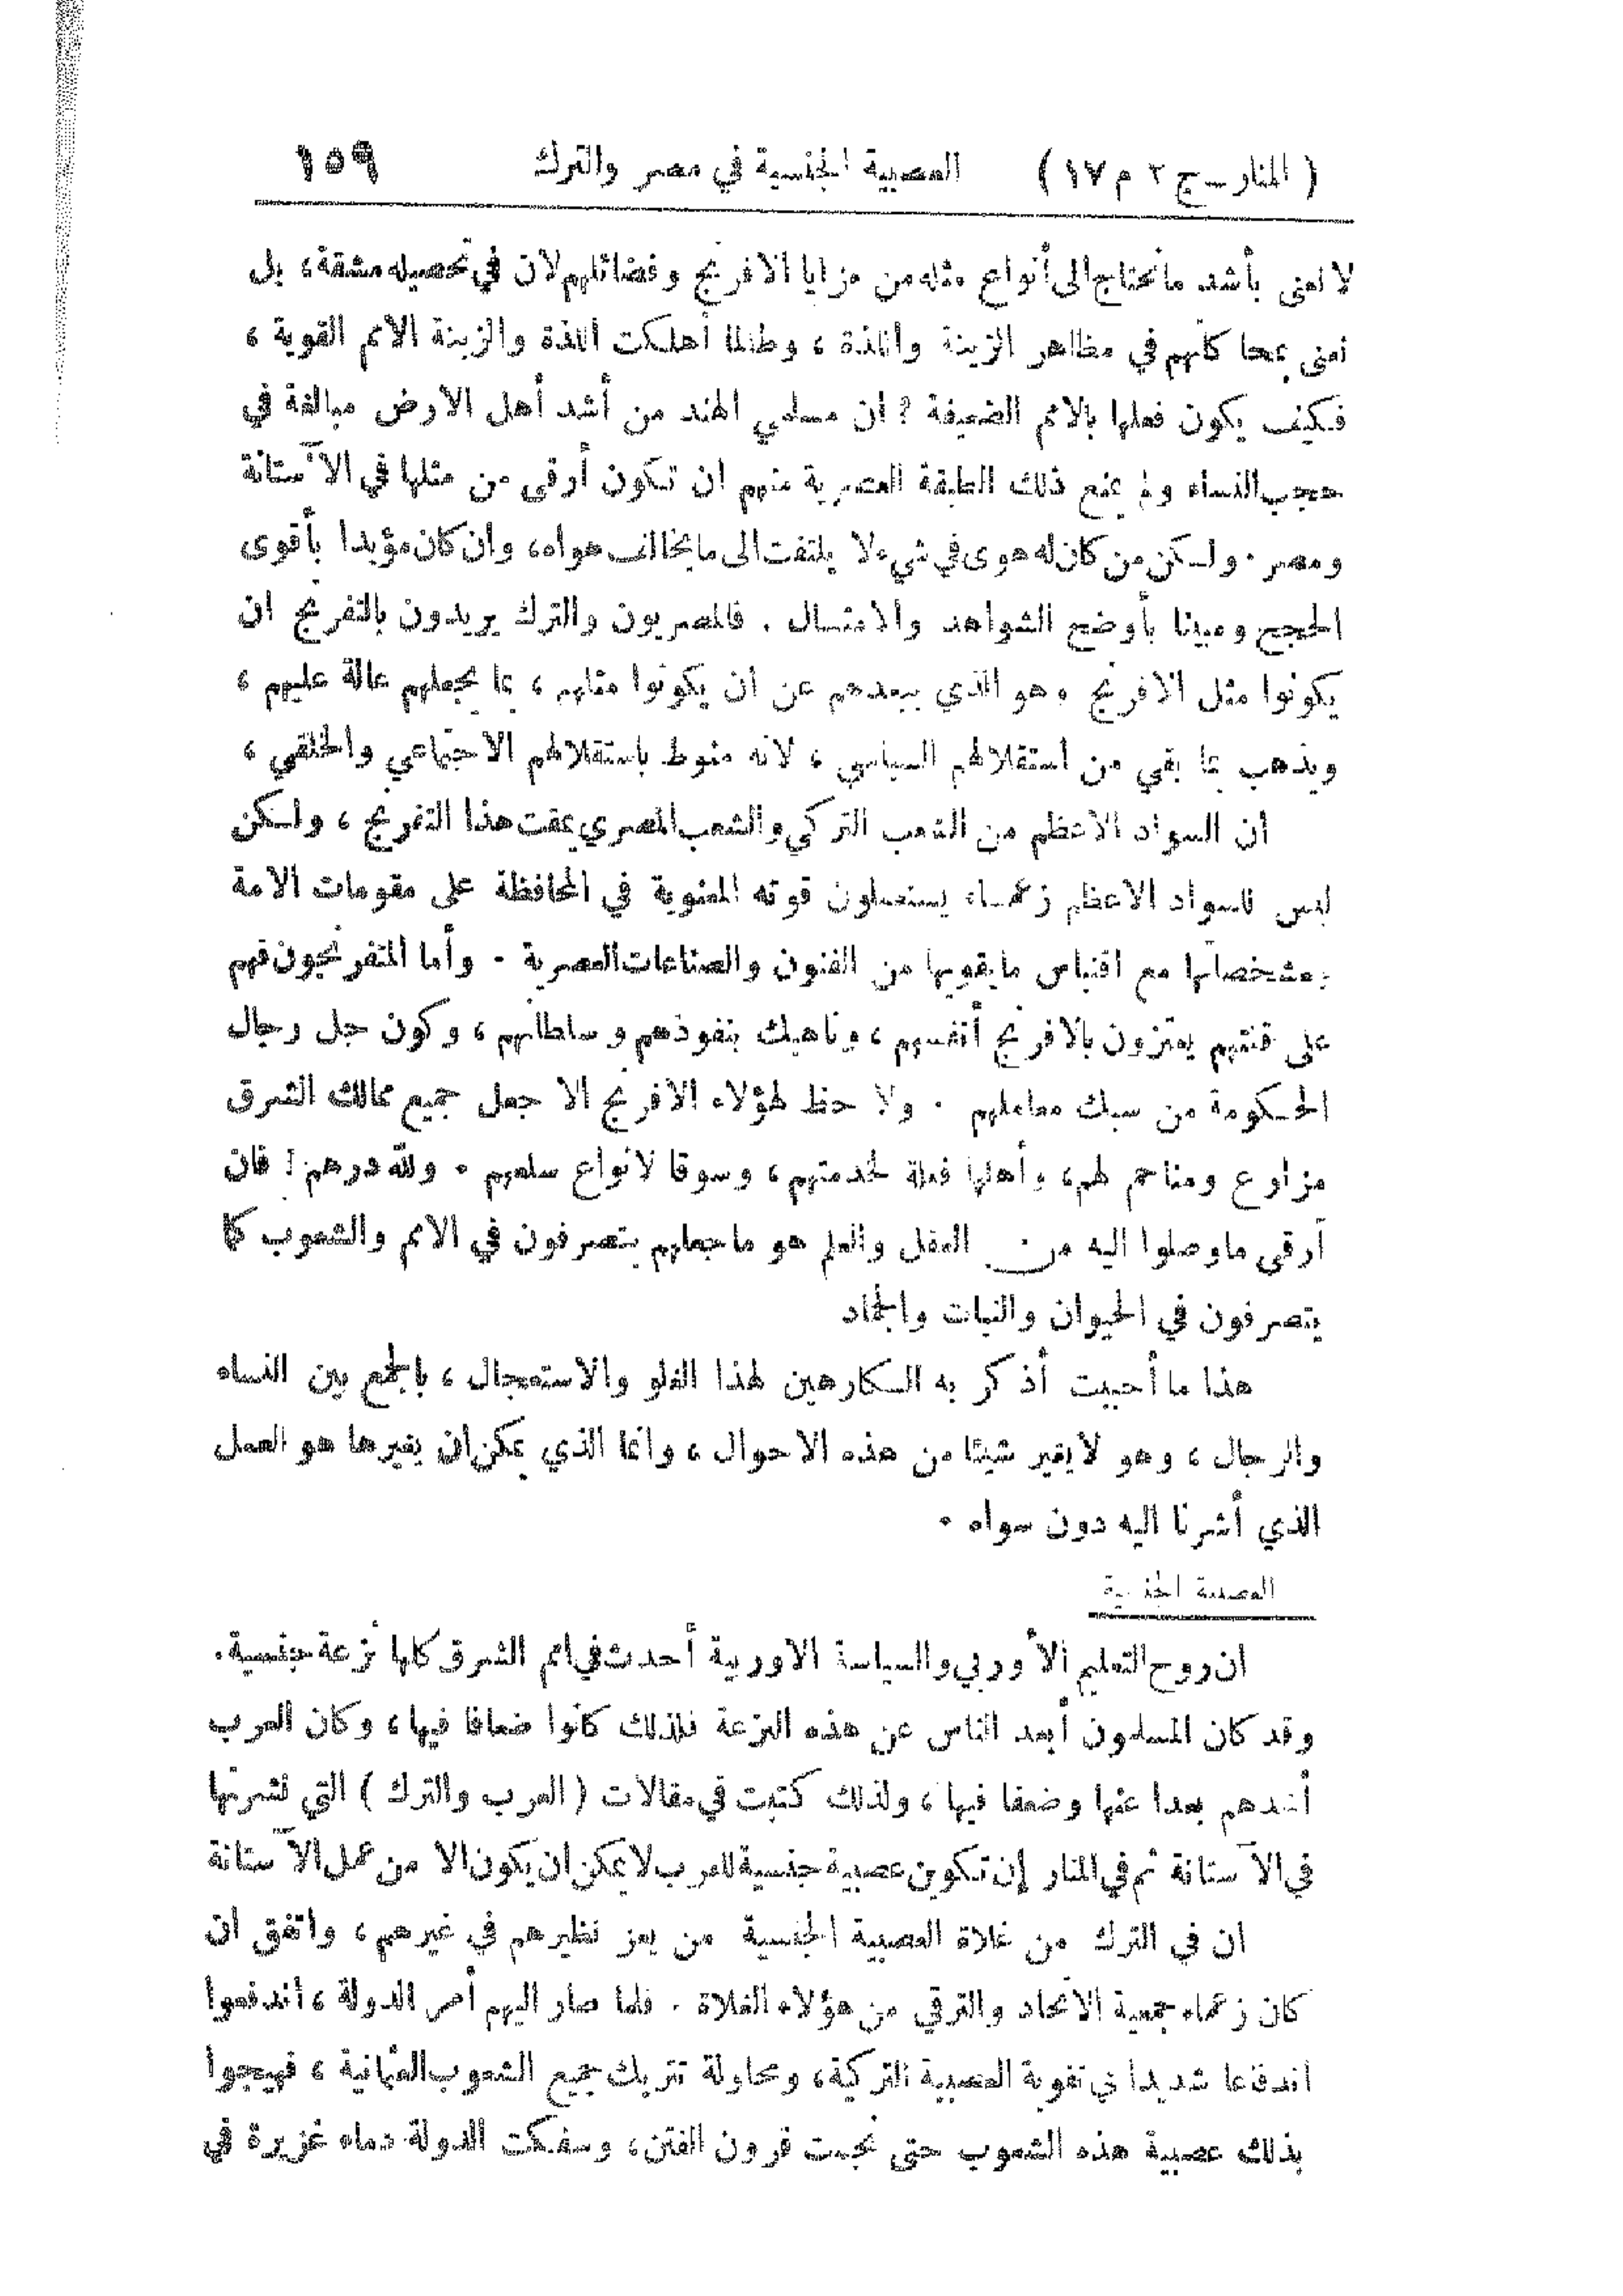 ( المنار ــ ج ٢ م ١٧ ) العصبية الجنسية في مصر والترك ١٥٩
لا نعنى بأشد ما نحتاج الى أنواع مثله من مزايا الافرنج وفضائلهم لان في تحصيله مشقة ، بل
نعنى بمحاكاتهم في مظاهر الزينة واللذة ، وطالما أهلكت اللذة والزينة الامم القوية ،
فكيف يكون فعلها بالامم الضعيفة ؟ ان مسلمي الهند من أشد أهل الارض مبالغة في
حجب النساء ولم يمنع ذلك الطبقة العصرية منهم ان تكون أرقى من مثلها في الآستانة
ومصر . ولكن من كان له هوى في شيء لا يلتفت الى ما يخالف هواه ، وان كان مؤيدا بأقوى
الحجج ومبينا بأوضح الشواهد والامثال . فالمصريون والترك يريدون بالتفرنج ان
يكونوا مثل الافرنج وهو الذي يبعدهم عن ان يكونوا مثلهم ، بما يجعلهم عالة عليهم ،
ويذهب بما بقي من استقلالهم السياسي ، لانه منوط باستقلالهم الاجتماعي والخلقي ،
ان السواد الاعظم من الشعب التركي والشعب المصري يمقت هذا التفرنج ، ولكن
ليس للسواد الاعظم زعماء يستعملون قوته المعنوية في المحافظة على مقومات الامة
ومشخصاتها مع اقتباس ما يقويها من الفنون والصناعات العصرية . وأما المتفرنجون فهم
على قلتهم يعتزون بالافرنج أنفسهم ، وناهيك بنفوذهم وسلطانهم ، وكون جل رجال
الحكومة من سبك معاملهم . ولا حظ لهؤلاء الافرنج الا جعل جميع ممالك الشرق
مزارع ومناجم لهم ، وأهلها فعلة لخدمتهم ، وسوقا لانواع سلعهم . ولله درهم ! فان
أرقى ما وصلوا اليه من العقل والعلم هو ما جعلهم يتصرفون في الامم والشعوب كما
يتصرفون في الحيوان والنبات والجماد
هذا ما أحببت أذكر به الكارهين لهذا الغلو والاستعجال ، بالجمع بين النساء
والرجال ، وهو لا يغير شيئا من هذه الاحوال ، وانما الذي يمكن ان يغيرها هو العمل
الذي أشرنا اليه دون سواه .
العصبية الجنسية
ان روح التعليم الأوربي والسياسة الاوربية أحدث في امم الشرق كلها نزعة جنسية .
وقد كان المسلمون أبعد الناس عن هذه النزعة فلذلك كانوا ضعافا فيها ، وكان العرب
أشدهم بعدا عنها وضعفا فيها ، ولذلك كتبت في مقالات ( العرب والترك ) التي نشرتها
في الآستانة ثم في المنار إن تكوين عصبية جنسية للعرب لا يمكن ان يكون الا من عمل الآستانة
ان في الترك من غلاة العصبية الجنسية من يعز نظيرهم في غيرهم ، واتفق ان
كان زعماء جمعية الاتحاد والترقي من هؤلاء الغلاة . فلما صار اليهم أمر الدولة ، اندفعوا
اندفاعا شديدا في تقوية العصبية التركية ، ومحاولة تتريك جميع الشعوب العثمانية ، فهيجوا
بذلك عصبية هذه الشعوب حتى نجمت قرون الفتن ، وسفكت الدولة دماء غزيرة في